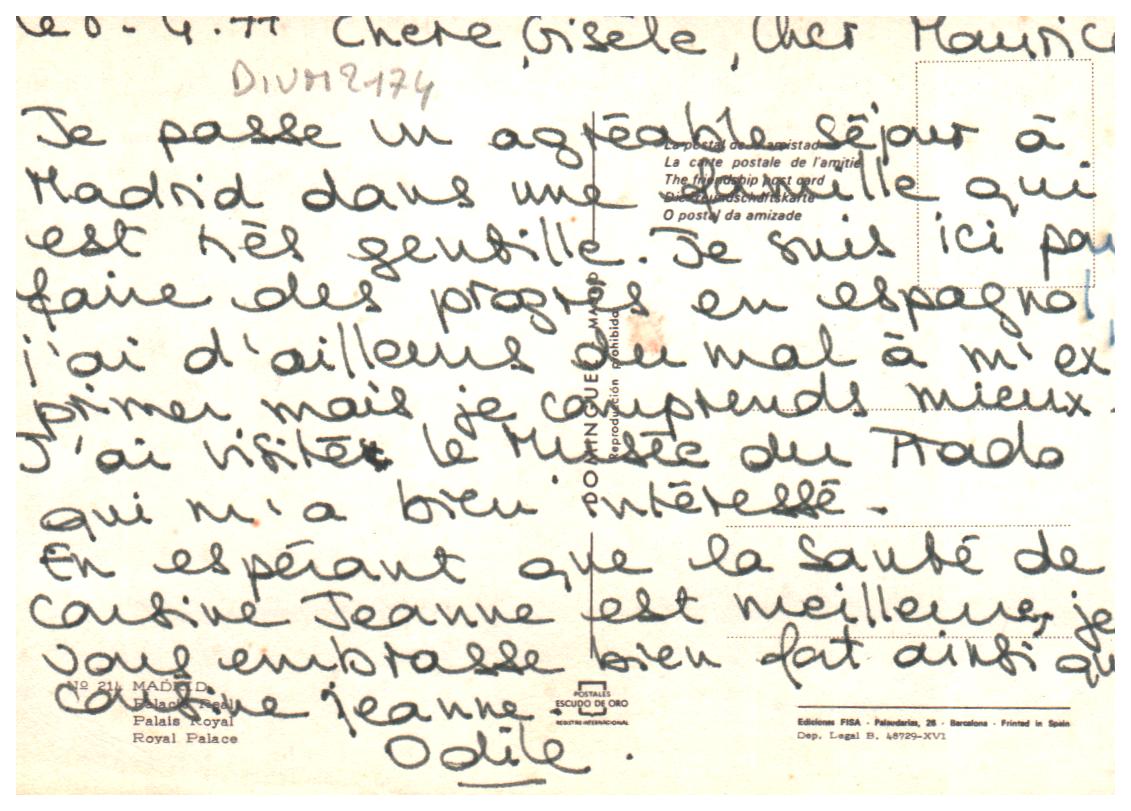 Le 8-4.77 Chère Gisèle, Cher Maurice
DIVM2174
Je passe un agréable séjour à
Madrid dans une famille qui
est très gentille. Je suis ici pour
faire des progrès en espagnol
j'ai d'ailleurs du mal à m'ex
primer mais je comprends mieux.
J'ai visité le Musée du Prado
qui m'a bien intéressé.
En espérant que la santé de
cousine Jeanne est meilleure, je
vous embrasse bien fort ainsi qu
cousine jeanne.
Odile.
La postal de la amistad
La carte postale de l'amitié
The friendship post card
Die Freundschaftskarte
O postal da amizade
DOMINGUEZ
Reproducción prohibida
Nº 214 MADRID
Palacio Real
Palais Royal
Royal Palace
POSTALES
ESCUDO DE ORO
REGISTRO INTERNACIONAL
Ediciones FISA - Palaudarias, 26 - Barcelona - Printed in Spain
Dep. Legal B. 48729-XVI